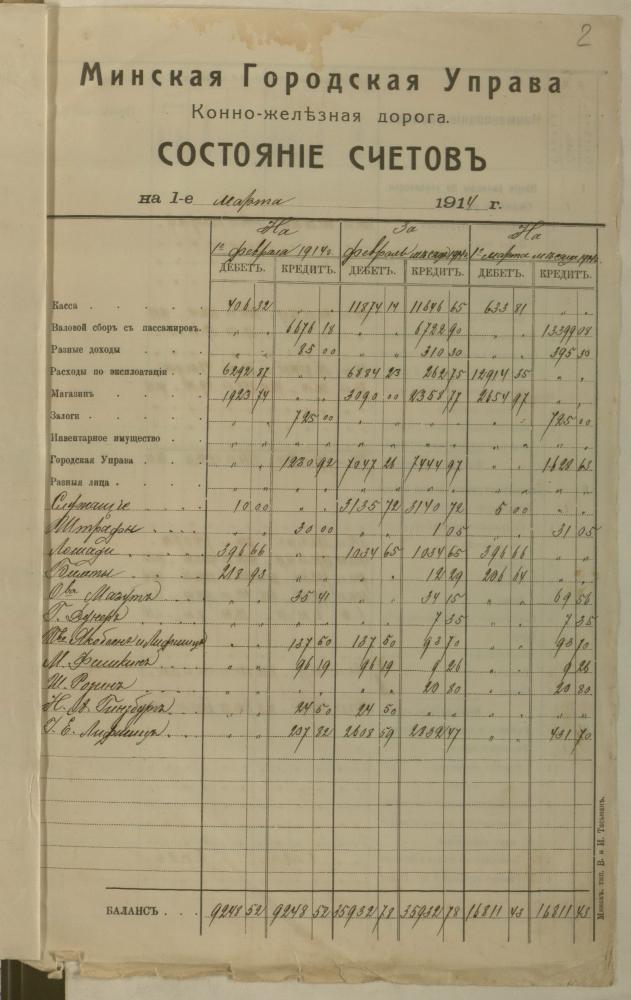 2
Минская Городская Управа
Конно-желѣзная дорога.
СОСТОЯНІЕ СЧЕТОВЪ
на 1-е марта 1914 г.
На За На
1е февраля 1914г. февраль месяцъ 1е марта
ДЕБЕТЪ. КРЕДИТЪ. ДЕБЕТЪ. КРЕДИТЪ. ДЕБЕТЪ. КРЕДИТЪ.
Касса . . . . . 406 32 „ „ 11874 14 11646 65 633 81 „ „
Валовой сборъ съ пассажиров. „ „ 6676 18 „ „ 6722 90 „ „ 13399 08
Разные доходы . . . „ „ 85 00 „ „ 310 30 „ „ 395 30
Расходы по эксплоатаціи . . 6292 87 „ „ 6884 23 262 75 12914 35 „ „
Магазинъ . . . . . 1923 74 „ „ 3090 00 2358 77 2654 97 „ „
Залоги . . . . . „ „ 725 00 „ „ „ „ „ „ 725 00
Инвентарное имущество . . „ „ „ „ „ „ „ „ „ „ „ „
Городская Управа . . . „ „ 1230 92 7047 26 7444 97 „ „ 1628 63
Разныя лица . . . . „ „ „ „ „ „ „ „ „ „ „ „
Служащіе 10 00 „ „ 3135 72 3140 72 5 00 „ „
Штрафы „ „ 30 00 „ „ 1 05 „ „ 31 05
Лошади 396 66 „ „ 1034 65 1034 65 396 66 „ „
Билеты 218 93 „ „ „ „ 12 29 206 64 „ „
О-ва Мазутъ „ „ 35 41 „ „ 34 15 „ „ 69 56
Г. „ „ „ „ „ „ 7 35 „ „ 7 35
Тва Якобсонъ и Лифшицъ „ „ 137 50 137 50 93 70 „ „ 93 70
М. Фишкинъ „ „ 96 19 96 19 9 26 „ „ 9 26
Ш. Розинъ „ „ „ „ „ „ 20 80 „ „ 20 80
Гинзбургъ „ „ 24 50 24 50 „ „ „ „ „ „
Е. Лифшицъ „ „ 207 82 2608 59 2832 47 „ „ 431 70
БАЛАНСЪ . . . 9248 52 9248 52 35932 78 35932 78 16811 43 16811 43
Минскъ, тип. В. и И. Тасьман.